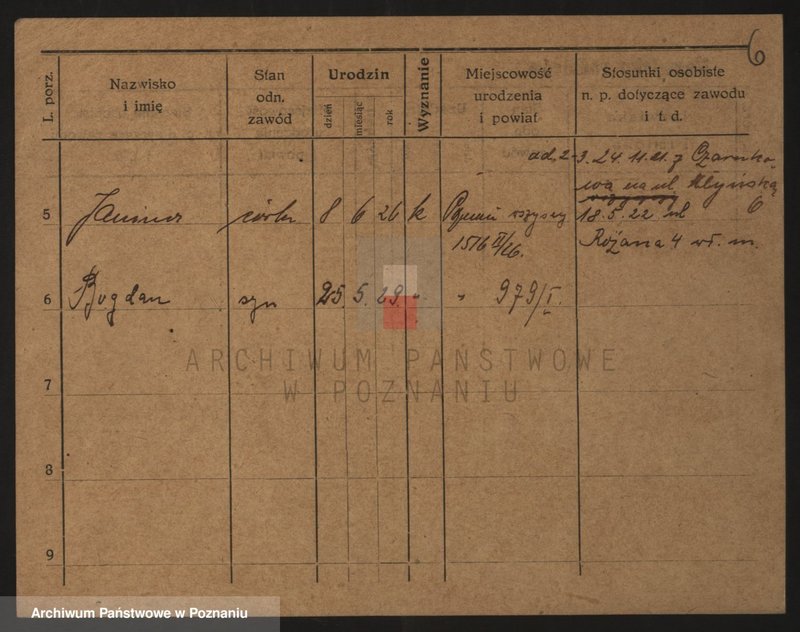 6
L. porz.
Nazwisko
i imię
Stan
odn.
zawód
Urodzin
dzień
miesiąc
rok
Wyznanie
Miejscowość
urodzenia
i powiat
Stosunki osobiste
n. p. dotyczące zawodu
i t. d.
5 córka 8 6 26 k
1516 II/26.
18.5.22 ul
Różana 4 wł. m.
6 Bogdan syn 25. 5. 29. " " 979/I.
7
8
9
ARCHIWUM PAŃSTWOWE
W POZNANIU
Archiwum Państwowe w Poznaniu